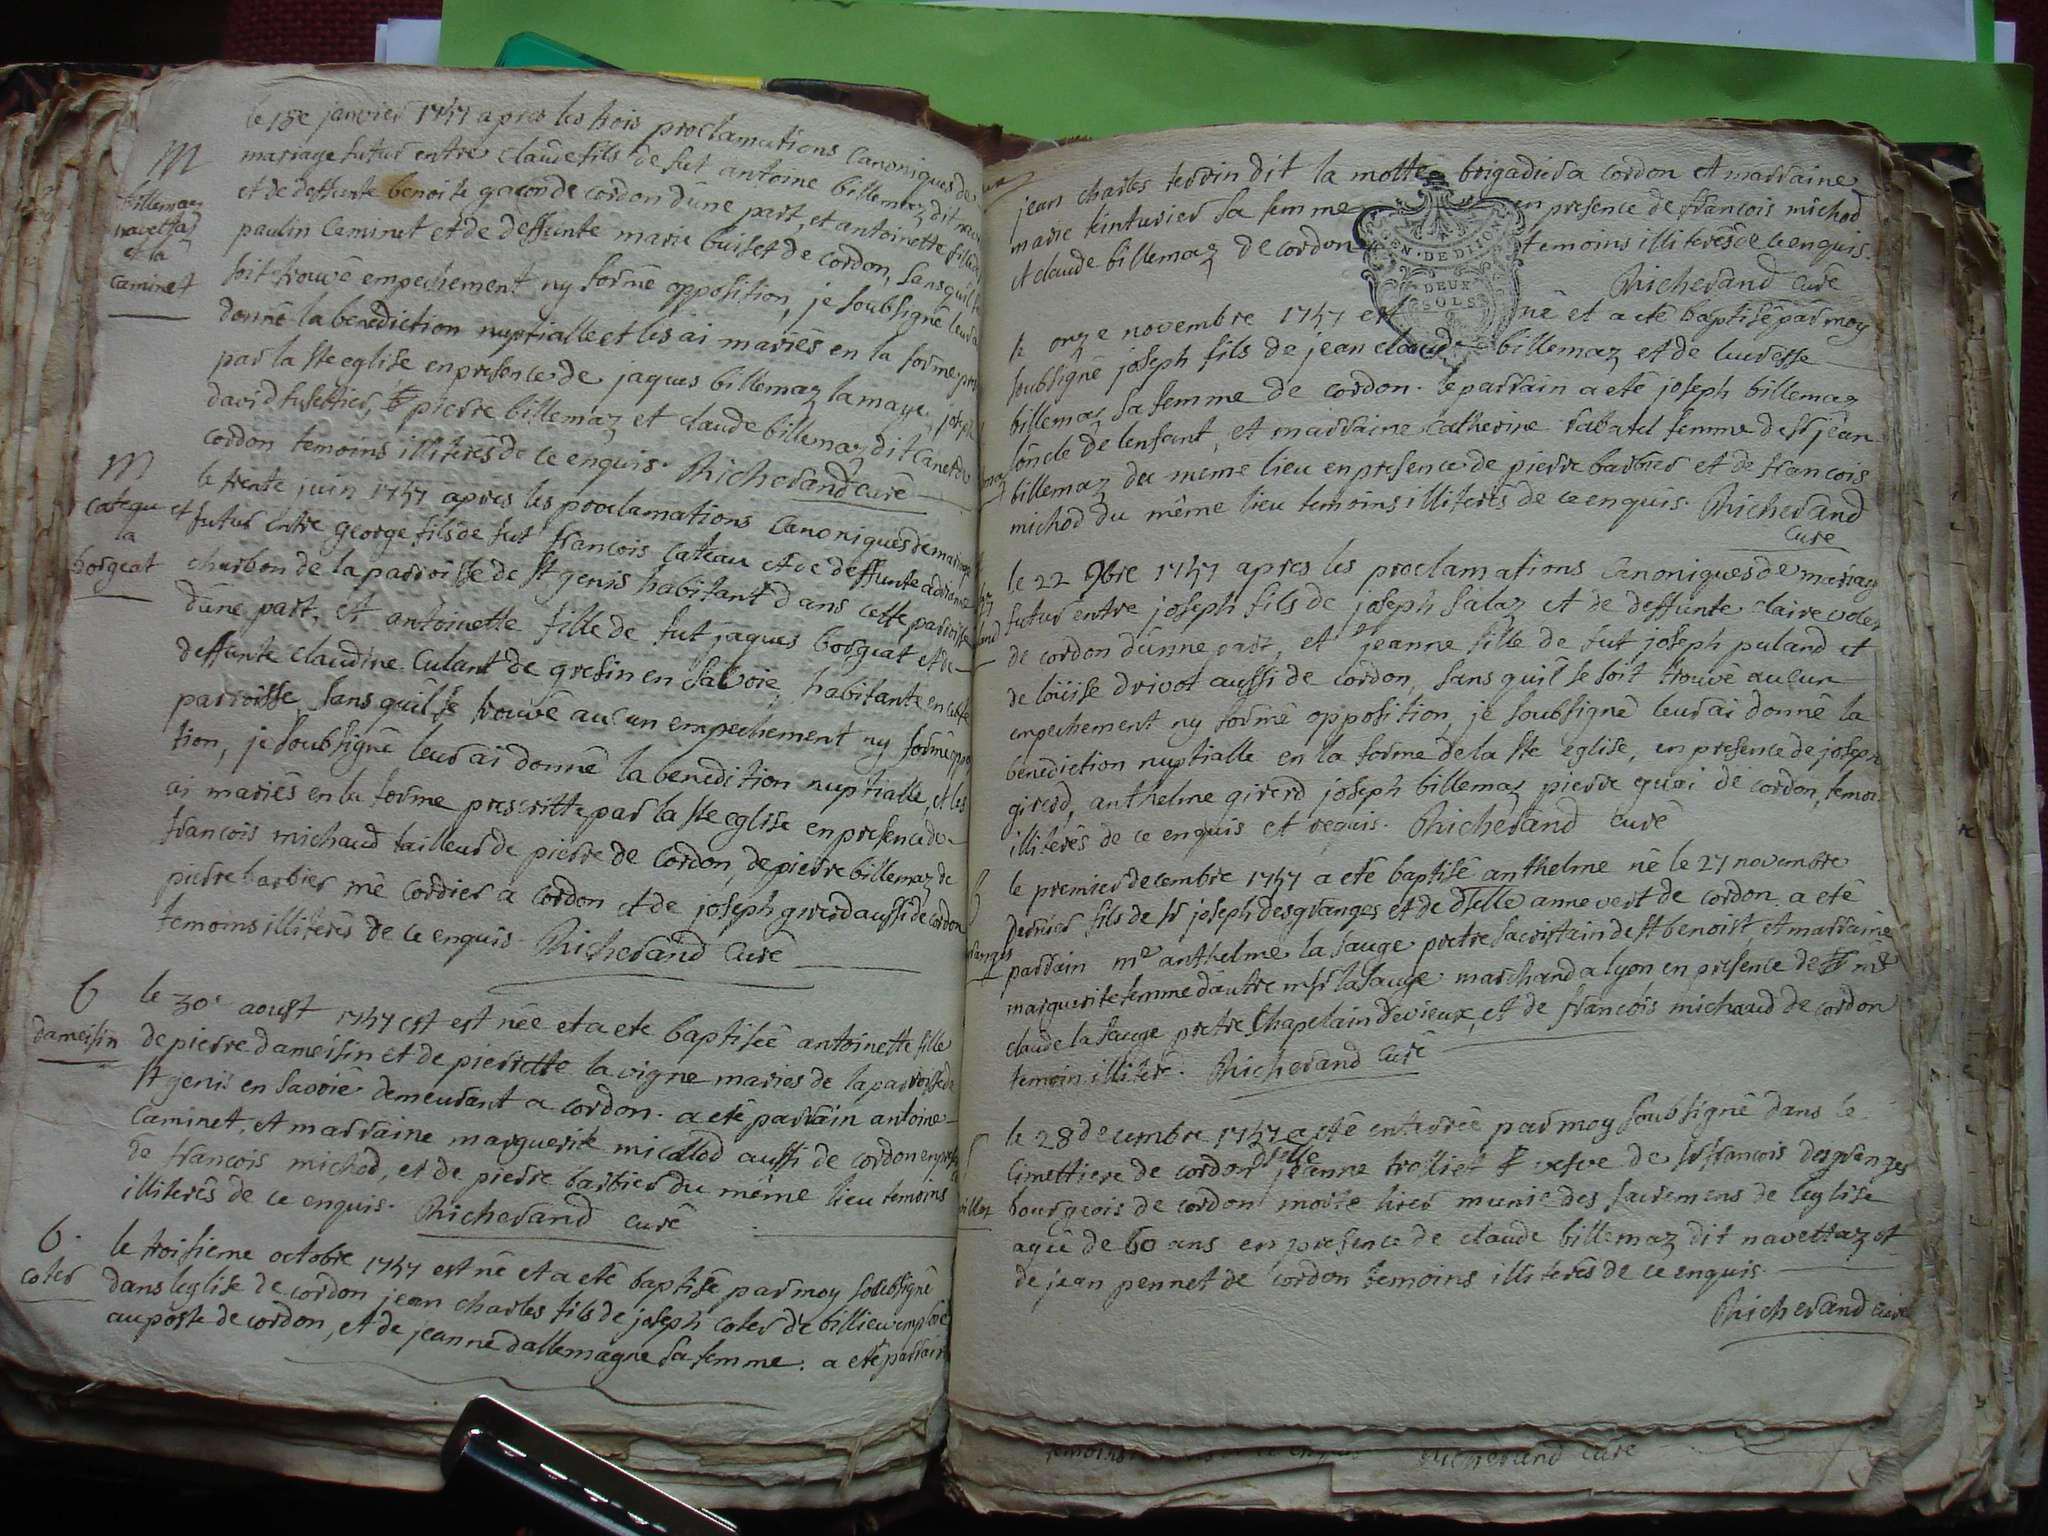 le 18e janvier 1747 apres les trois proclamations canoniques de
M
mariage futur entre claude fils de fut antoine billemaz dit
billemaz
navettaz
et la
caminet
et de deffunte benoite gacon de cordon d'une part, et antoinette fille de
paulin caminet et de deffunte marie buiset de cordon, sans qu'il se
soit trouvé empechement ny formé opposition, je soubsigné leur ai
donné la benediction nuptialle et les ai mariés en la forme
par la ste eglise en presence de jaques billemaz la maye, joseph
david fusettier, pierre billemaz et claude billemaz dit canet de
cordon temoins illiterés de ce enquis. Richerand curé
M
cateau et
la
borgeat
le trente juin 1747 apres les proclamations canoniques de mariage
futur entre george fils de fut francois cateau et de deffunte adrianne
charbon de la parroisse de st genis habitant dans cette parroisse
d'une part, et antoinette fille de fut jaques borgeat et de
deffunte claudine culant de gresin en savoie, habitante en cette
parroisse sans qu'il se trouvé aucun empechement ny formé oppo
tion, je soubsigné leur ai donné la benedition nuptialle, et les
ai mariés en la forme prescritte par la ste eglise en presence de
francois michaud tailleur de pierre de cordon, de pierre billemaz de
pierre barbier mé cordier a cordon et de joseph girerd aussi de cordon
temoins illiterés de ce enquis. Richerand curé
b
dameisin
le 30e aoust 1747 est est née et a eté baptisée antoinette fille
de pierre dameisin et de pierrette lavigne mariés de la parroisse de
st genis en savoie demeurant a cordon. a eté parrain antoine
caminet, et marraine marguerite micollod aussi de cordon en presence
de francois michod, et de pierre barbier du même lieu temoins
illiterés de ce enquis. Richerand curé
b.
coter
le troisieme octobre 1747 est né et a eté baptisé par moy soubsigné
dans leglise de cordon jean charles fils de joseph coter de billieu emploié
au poste de cordon, et de jeanne dallemagne sa femme. a eté parrain
jean charles terrin dit la motte brigadier a cordon et marraine
marie tinturier sa femme en presence de francois michod
et claude billemaz de cordon temoins illiterés de ce enquis.
Richerand curé
GEN. DE DIJON
DEUX
SOLS
le onze novembre 1747 est né et a eté baptisé par moy
soubsigné joseph fils de jean claude billemaz et de lucresse
billemaz sa femme de cordon. le parrain a eté joseph billemaz
loncle de lenfant, et marraine catherine rabatel femme de st jean
billemaz du même lieu en presence de pierre barbier et de francois
michod du même lieu temoins illiterés de ce enquis. Richerand
curé
le 22 9bre 1747 apres les proclamations canoniques de mariage
futur entre joseph fils de joseph salaz et de deffunte claire
de cordon d'unne part, et jeanne fille de fut joseph puland et
de loüise drivot aussi de cordon, sans quil se soit trouvé aucun
empechement ny formé opposition, je soubsigné leur ai donné la
benediction nuptialle en la forme de la ste eglise, en presence de joseph
girerd, anthelme girerd joseph billemaz pierre quai de cordon, temoins
illiterés de ce enquis et requis. Richerand curé
b
le premier decembre 1747 a eté baptisé anthelme né le 27 novembre
dernier fils de sr joseph desgranges et de dlle anne vert de cordon a eté
parrain mre anthelme la sauge pretre sacristain de st benoist, et marraine
marguerite femme dautre mr la sauge marchand a lyon en presence de mre
claude la sauge pretre chapelain de vieux, et de francois michaud de cordon
temoin illiteré. Richerand curé
le 28 decembre 1747 a eté enterrée par moy soubsigné dans le
cimettiere de cordon dlle jeanne trolliet vefve de sr francois desgranges
bourgeois de cordon morte hier munie des sacremens de leglise
agée de 60 ans en presence de claude billemaz dit navettaz et
de jean pennet de cordon temoins illiterés de ce enquis.
Richerand curé
temoins Richerand curé